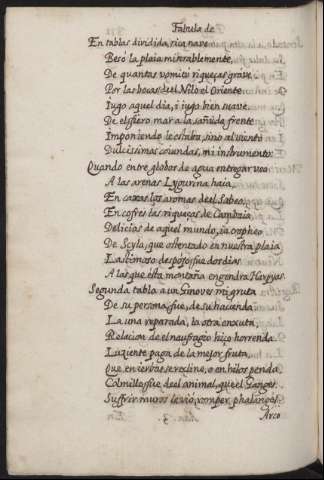 Fabula de
En tablas diuidida, rica naue
Besò la plaia miserablemente,
De quantas vomitò riqueças graue
Por las bocas del Nilo el Oriente.
Iugo aquel dia, i iugo bien suaue.
Del fiero mar a la sañuda frente
Imponiendo le estaba, sino al viento
Dulcissimas coiundas, mi instrumento:
Quando entre globos de agua entregar veo
A las arenas Lygurina haia,
En caxas los aromas del Sabeo,
En cofres las riqueças de Cambaia,
Delicias de aquel mundo, ia tropheo
De Scyla, que ostentado en nuestra plaia
Lastimoso despojo fue dos dias
A las que esta montaña engendra Harpyas.
Segunda tabla a vn Ginoues mi gruta
De su persona, fue, de su hacienda
La una reparada, la otra enxuta,
Relacion de el naufragio hiço horrenda.
Luziente paga de la mejor fruta,
Que en ierbas se recline, o en hilos penda
Colmillo fue del animal, que el Ganges
Suffrir muros le viò, romper phalanges.
Arco